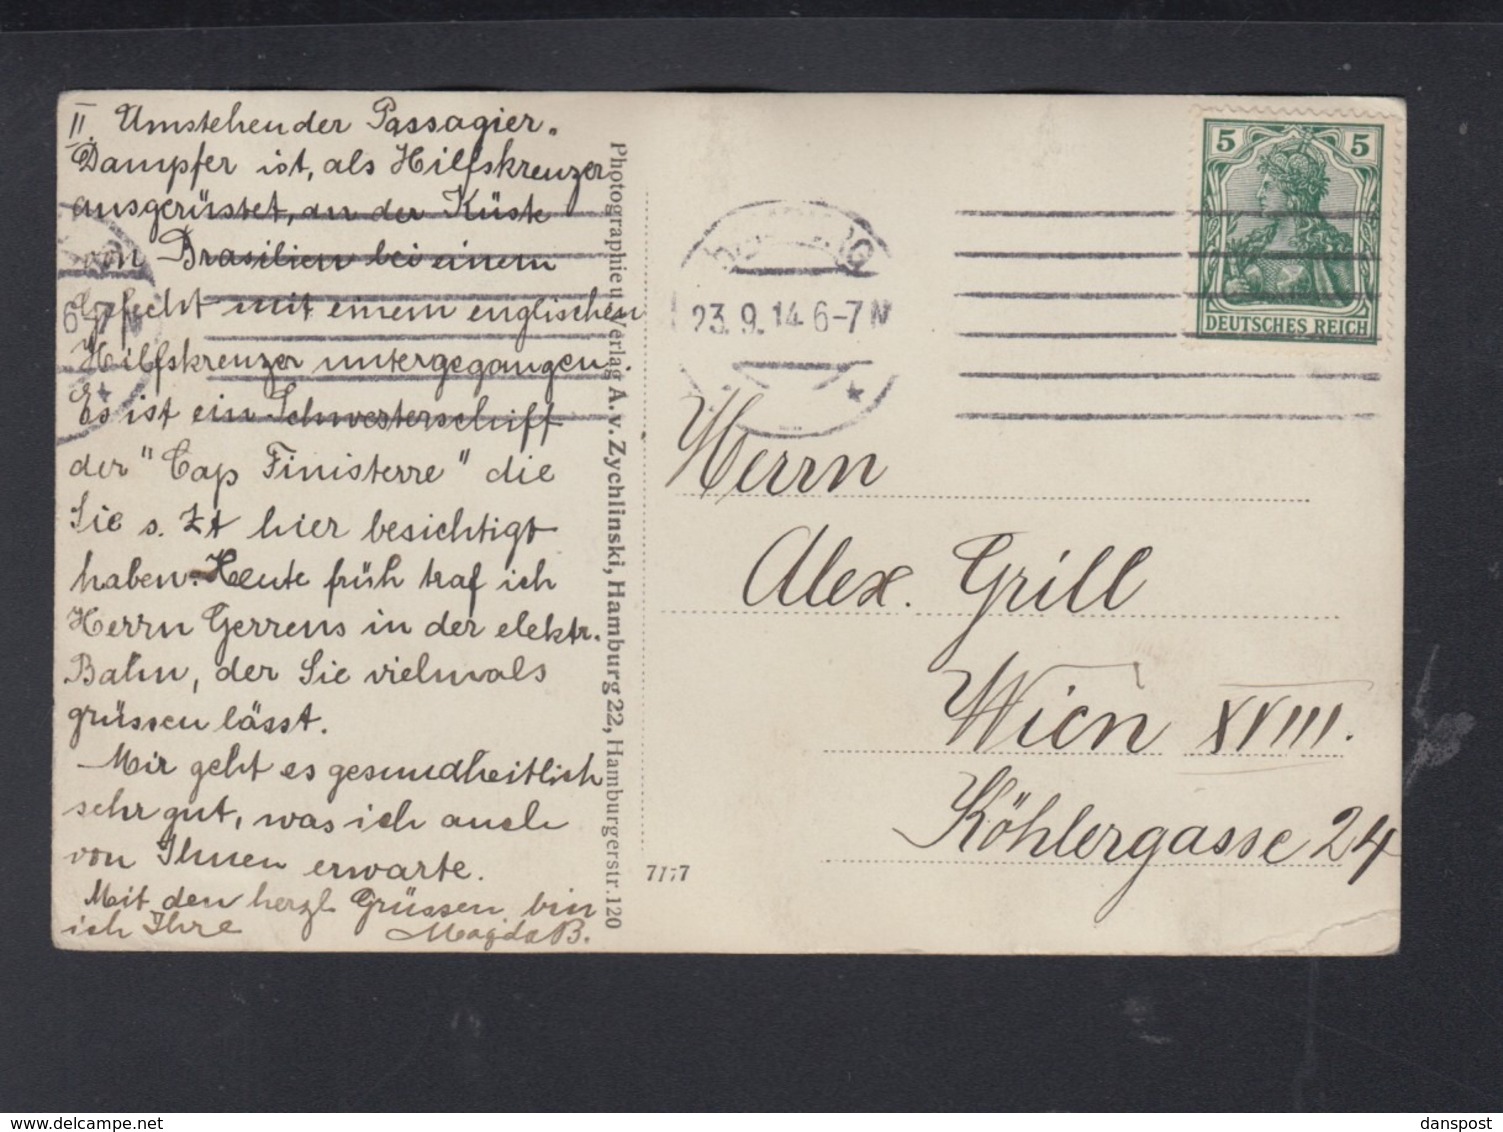 II. Umstehender Passagier-
Dampfer ist, als Hilfskreuzer
ausgerüstet, an der Küste
von Brasilien bei einem
Gefecht mit einem englischen
Hilfskreuzer untergegangen.
Es ist ein Schwesterschiff
der "Cap Finisterre" die
Sie s. Zt hier besichtigt
haben. Heute früh traf ich
Herrn Gerrens in der elektr.
Bahn, der Sie vielmals
grüssen lässt.
Mir geht es gesundheitlich
sehr gut, was ich auch
von Ihnen erwarte.
Mit den herzl. Grüssen bin
ich Ihre Magda B.
Photographie u. Verlag A. v. Zychlinski, Hamburg 22, Hamburgerstr. 120
6-7 N
HAMBURG
23. 9. 14. 6-7 N
5 5
DEUTSCHES REICH
Herrn
Alex. Grill
Wien XVIII.
Köhlergasse 24
delcampe.net
danspost